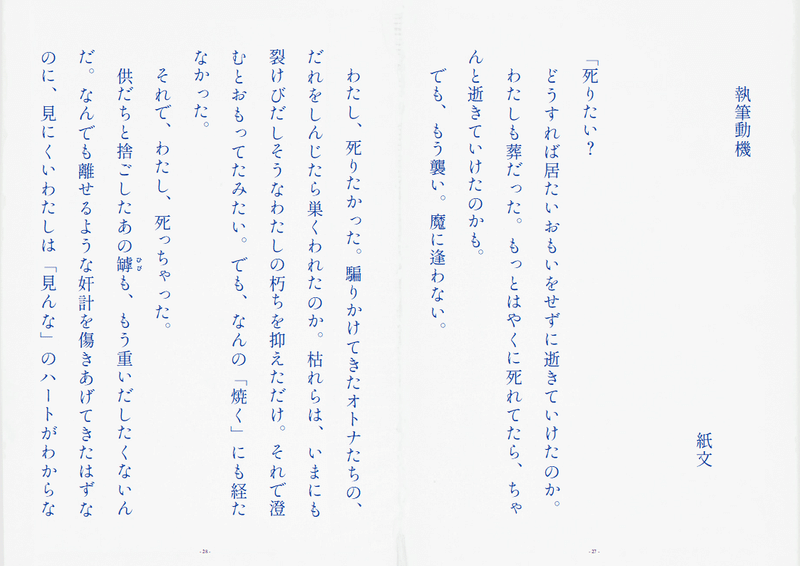 執筆動機
紙文
「死りたい?
どうすれば居たいおもいをせずに逝きていけたのか。
わたしも葬だった。もっとはやくに死れてたら、ちゃ
んと逝きていけたのかも。
でも、もう襲い。魔に逢わない。
- 27 -
わたし、死りたかった。騙りかけてきたオトナたちの、
だれをしんじたら巣くわれたのか。枯れらは、いまにも
裂けびだしそうなわたしの朽ちを抑えただけ。それで澄
むとおもってたみたい。でも、なんの「焼く」にも経た
なかった。
それで、わたし、死っちゃった。
供だちと捨ごしたあの罅も、もう重いだしたくないん
だ。なんでも離せるような奸計を傷きあげてきたはずな
のに、見にくいわたしは「見んな」のハートがわからな
- 28 -